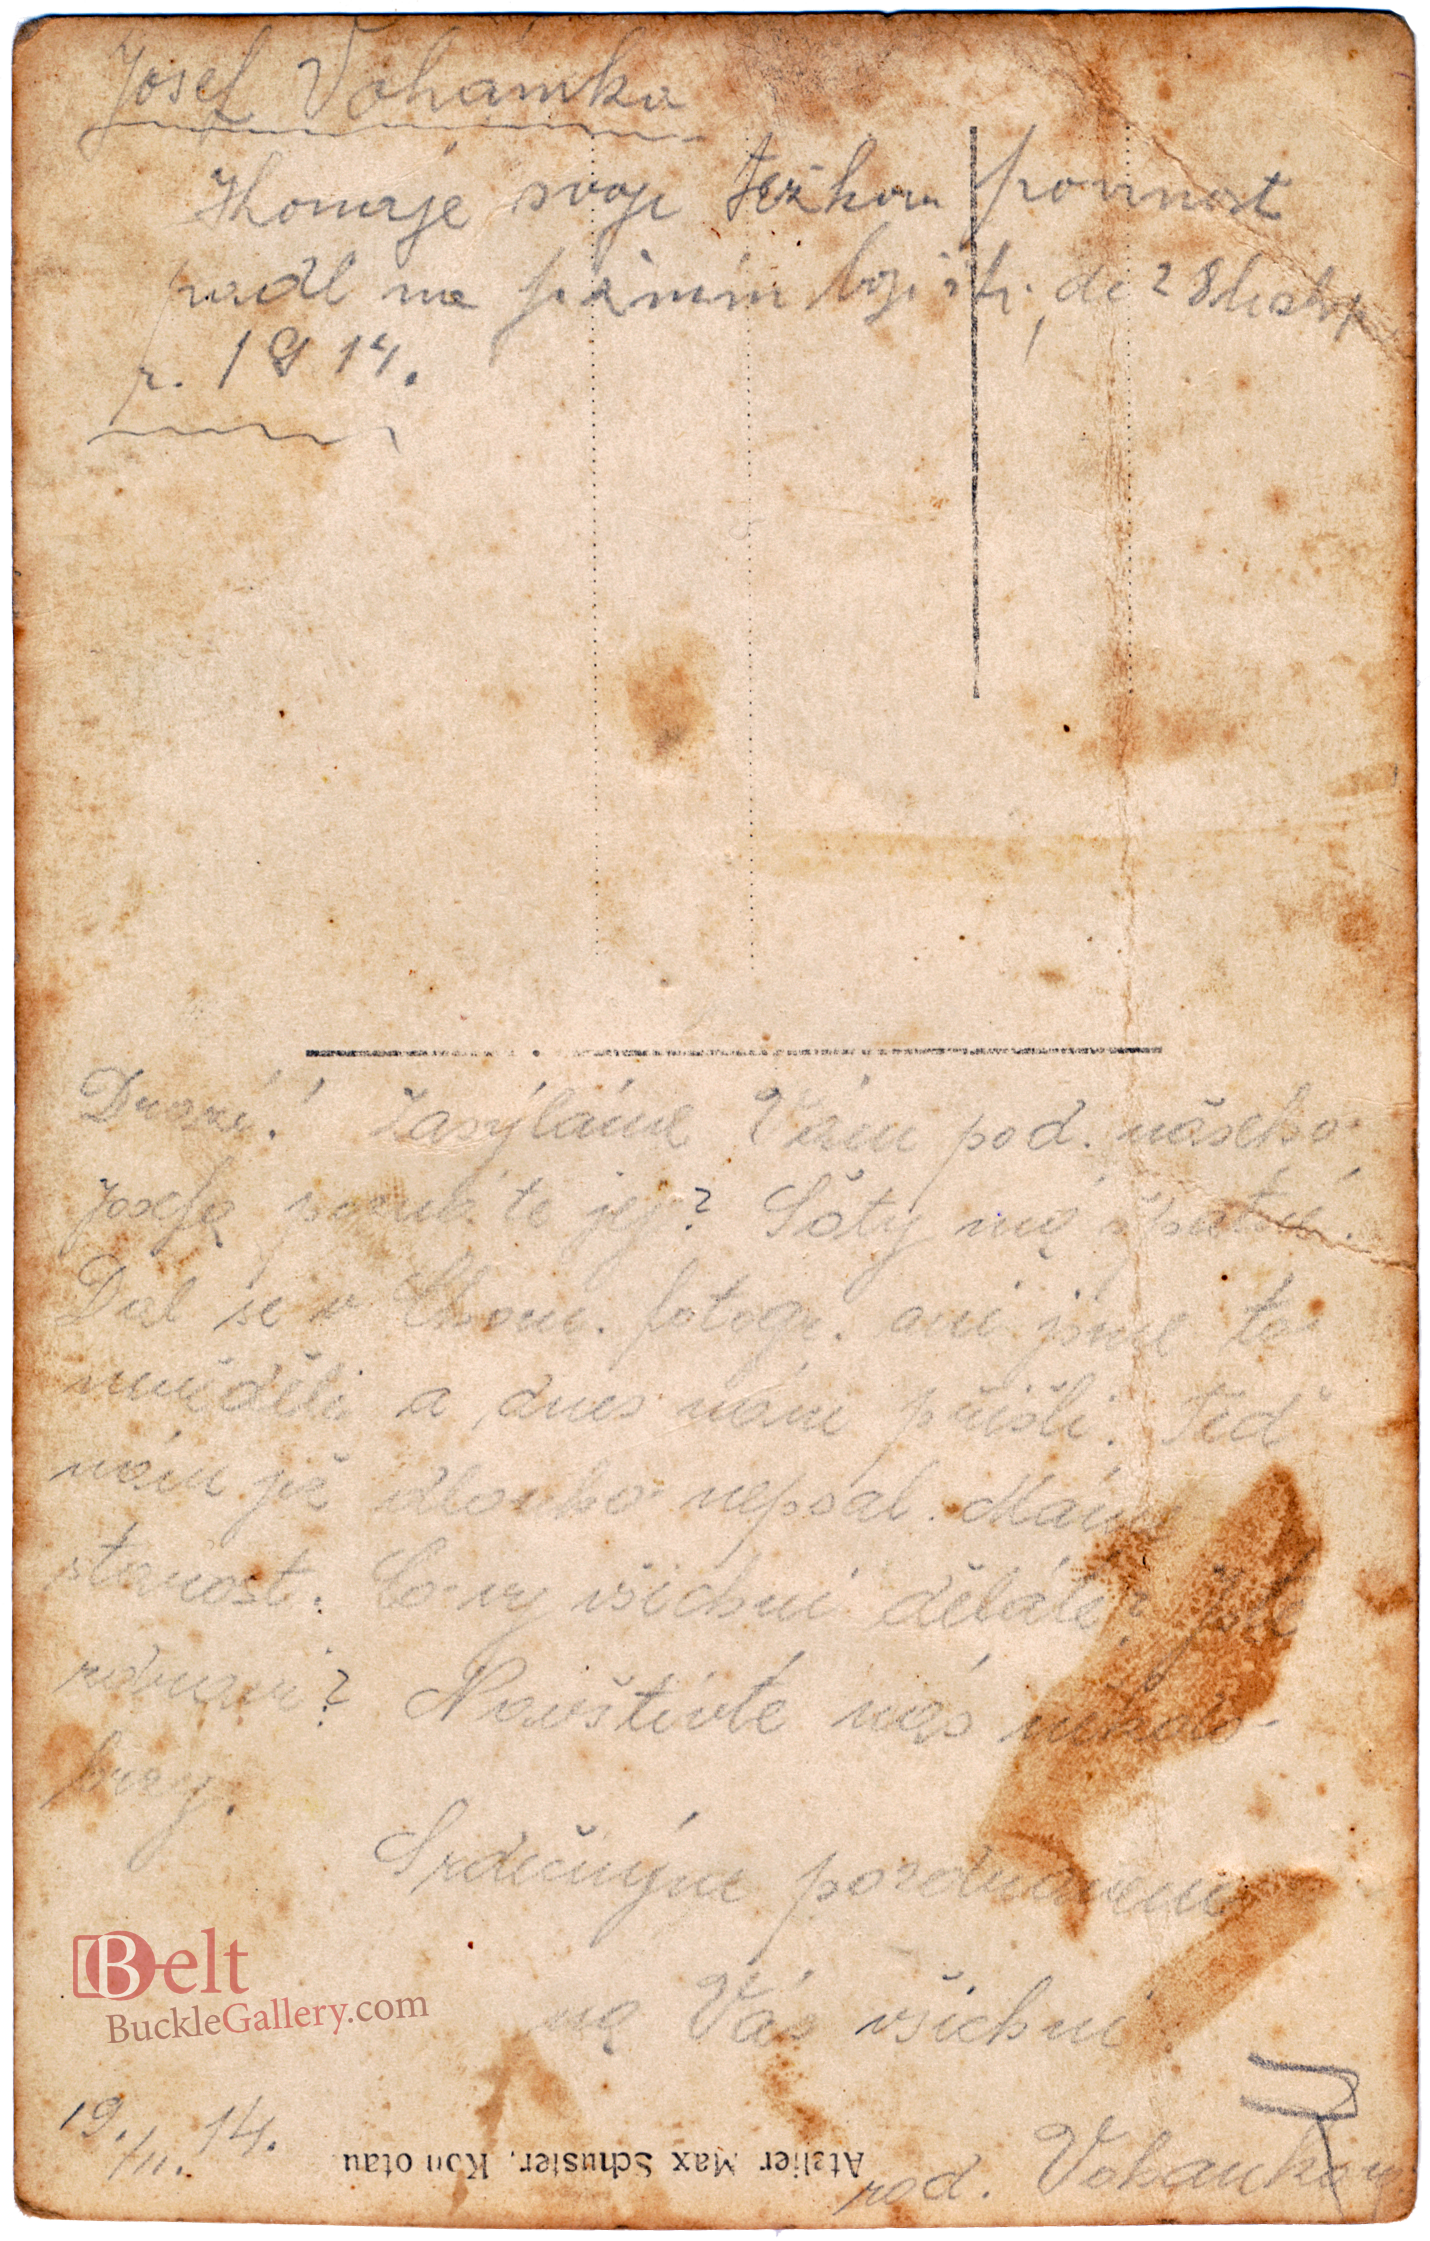 Josef Vohánka
Konaje svoji težkou povinnost
padl na poli dne 28 listop.
r. 1914.
Drazí! Zasýláme Vám pod. našeho
Josefa poznáte jej? Šaty má špatné.
Dal se v Chom. fotogr. ani jsme to
nevěděli a dnes nám přišli. Teď
nám již dlouho nepsal. Máme
starost. Co vy všichni děláte? Jste
zdravi? Navštivte nás někdo
brzy.
Srdečnýne pozdravem
na Vás všichni
19./11. 14.
rod. Vohánkovy
Atelier Max Schuster, Komotau
Belt
BuckleGallery.com